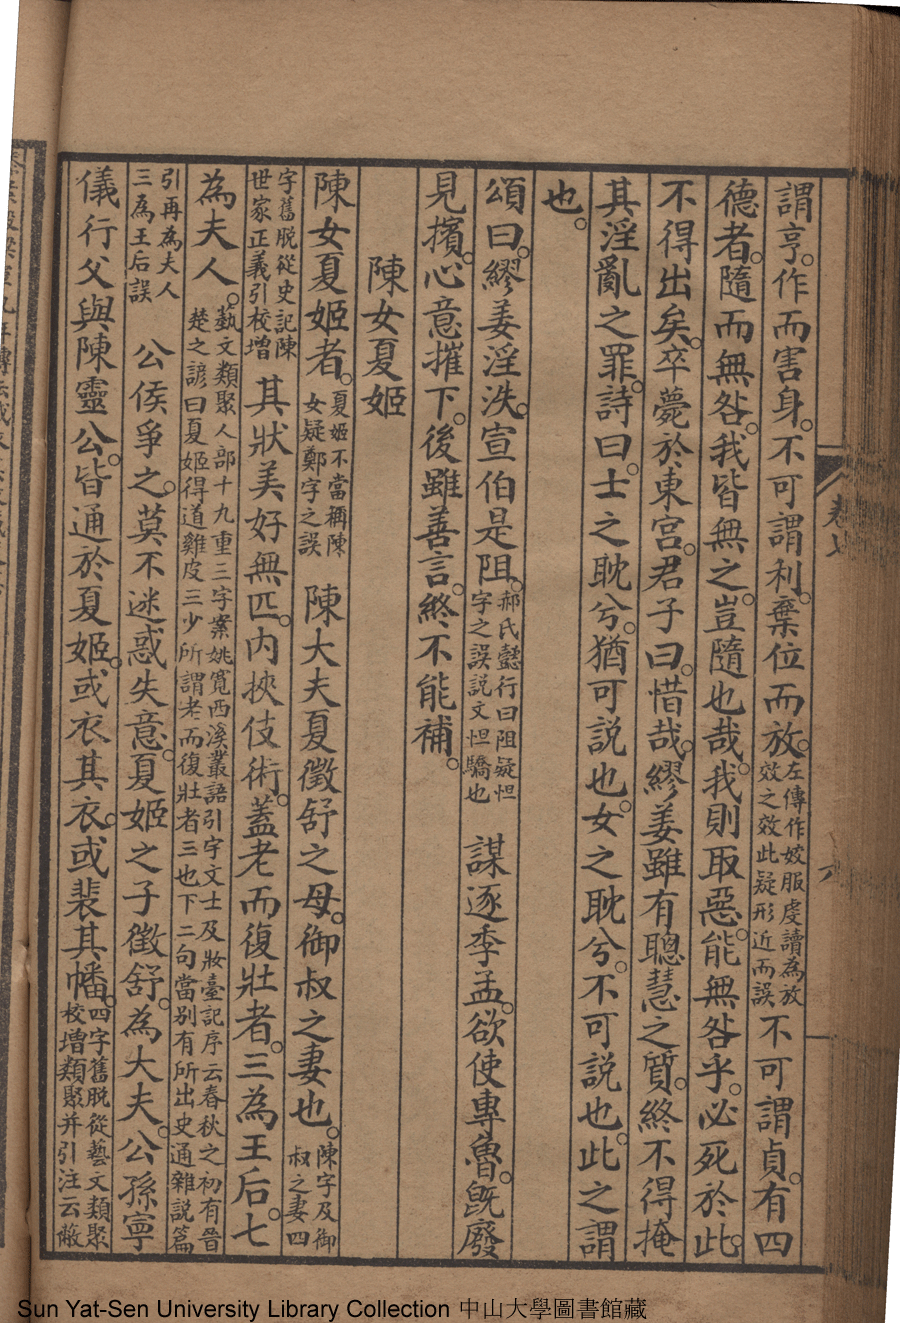 謂亨。作而害身。不可謂利。棄位而放。左傳作姣服虔讀為放效之效此疑形近而誤不可謂貞。有四
德者。隨而無咎。我皆無之。豈隨也哉。我則取惡。能無咎乎。必死於此。
不得出矣。卒薨於東宮。君子曰。惜哉。繆姜雖有聰慧之質。終不得掩
其淫亂之罪。詩曰。士之耽兮。猶可說也。女之耽兮。不可說也。此之謂
也。
頌曰。繆姜淫泆。宣伯是阻。郝氏懿行曰阻疑怚字之誤說文怚驕也 謀逐季孟。欲使專魯。既廢
見擯。心意摧下。後雖善言。終不能補。
陳女夏姬
陳女夏姬者。夏姬不當稱陳女疑鄭字之誤 陳大夫夏徵舒之母。御叔之妻也。陳字及御叔之妻四
字舊脫從史記陳世家正義引校增 其狀美好無匹。內挾伎術。蓋老而復壯者。三為王后。七
為夫人。蓺文類聚人部十九重三字案姚寬西溪叢語引宇文士及妝臺記序云春秋之初有晉楚之諺曰夏姬得道雞皮三少所謂老而復壯者三也下二句當别有所出史通雜說篇
引再為夫人三為王后誤 公侯爭之。莫不迷惑失意。夏姬之子徵舒。為大夫。公孫寧
儀行父與陳靈公。皆通於夏姬。或衣其衣。或裴其幡。四字舊脫從藝文類聚校增類聚并引注云蔽
卷八
Sun Yat-Sen University Library Collection 中山大學圖書館藏